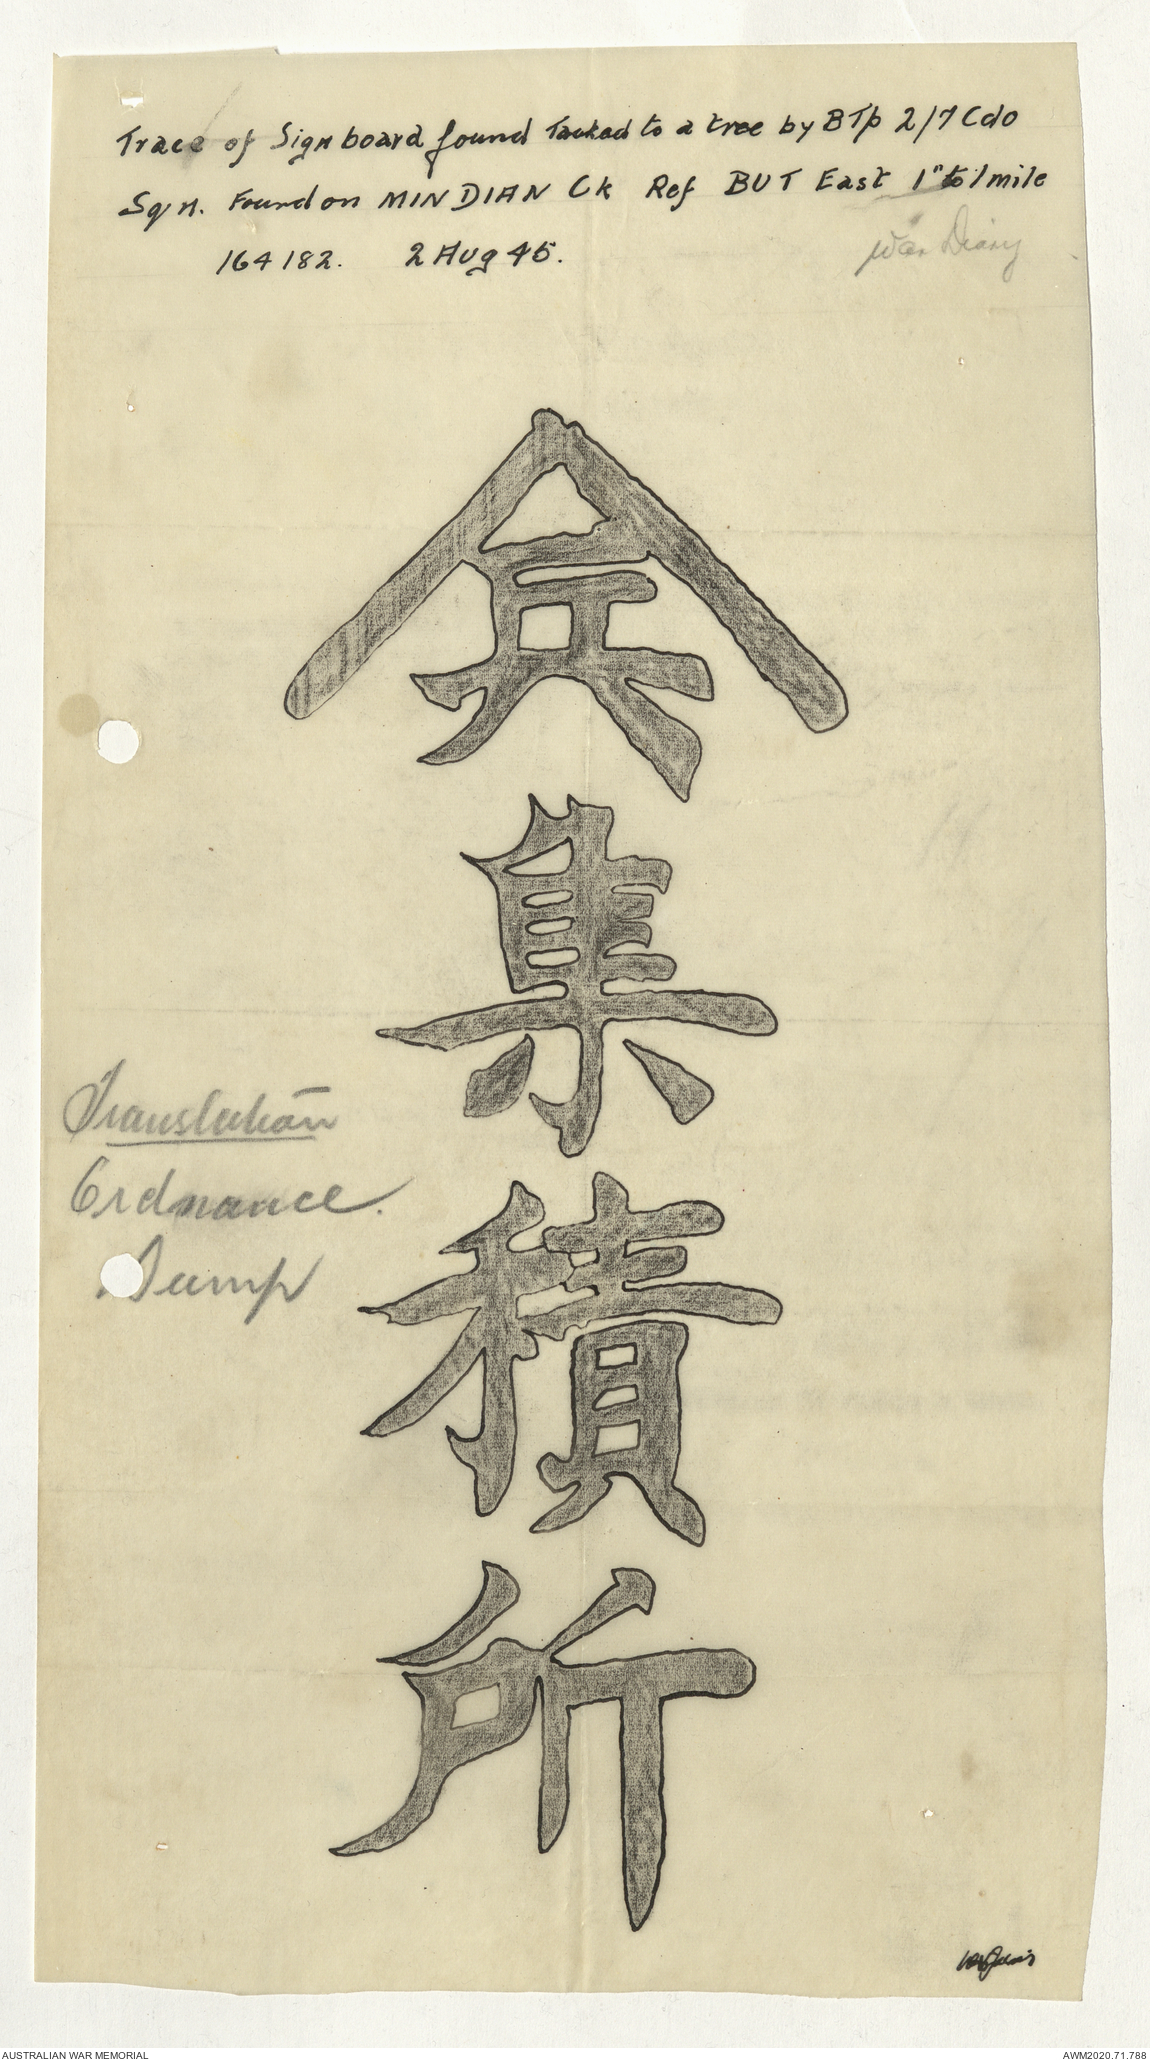 Trace of Signboard found Tacked to a tree by B Tp 2/7 Cdo
Sqn. Found on MINDIAN Ck Ref BUT East 1" to 1 mile
164182. 2 Aug 45.
War Diary
兵
集
積
所
Translation
Ordnance.
Dump
AUSTRALIAN WAR MEMORIAL
AWM2020.71.788